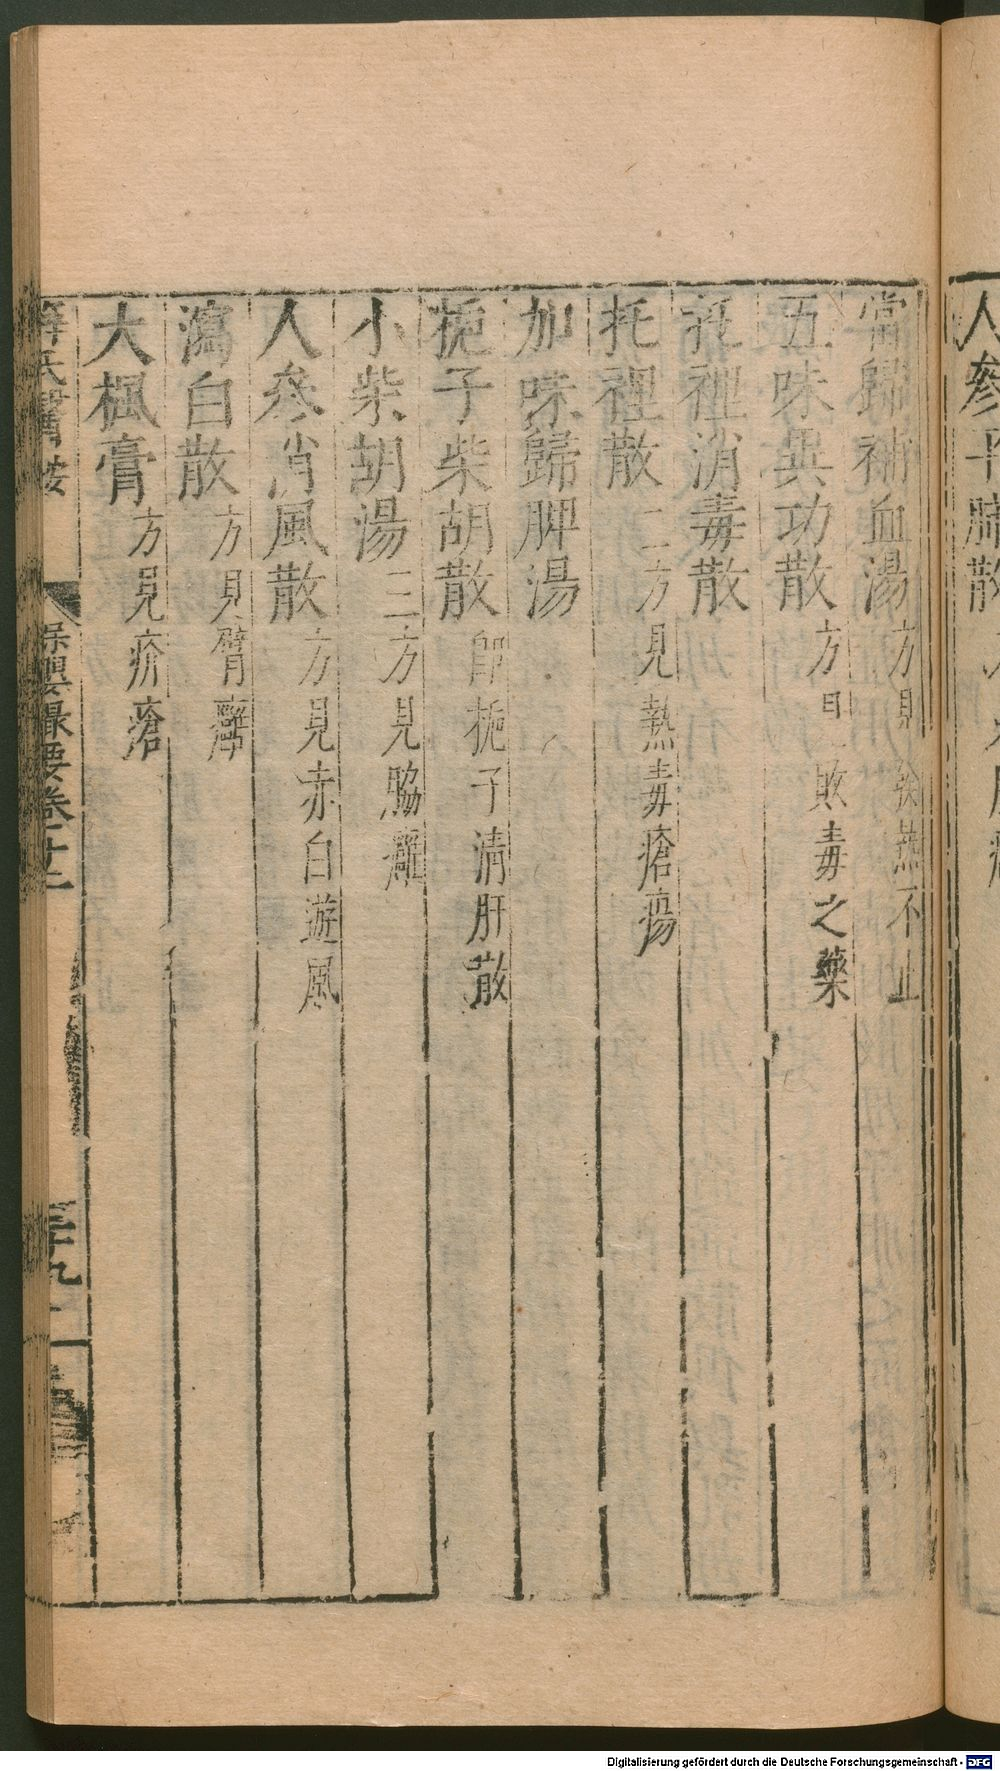 當歸補血湯方見發熱不止
五味異功散方見敗毒之藥
托裡消毒散
托裡散二方見熱毒瘡瘍
加味歸脾湯
梔子柴胡散即梔子清肝散
小柴胡湯三方見脇癰
人參消風散方見赤白遊風
瀉白散方見臂癰
大楓膏方見疥瘡
薛氏醫按 保嬰撮要卷十二 三十九
人參平肺散
Digitalisierung gefördert durch die Deutsche Forschungsgemeinschaft - DFG